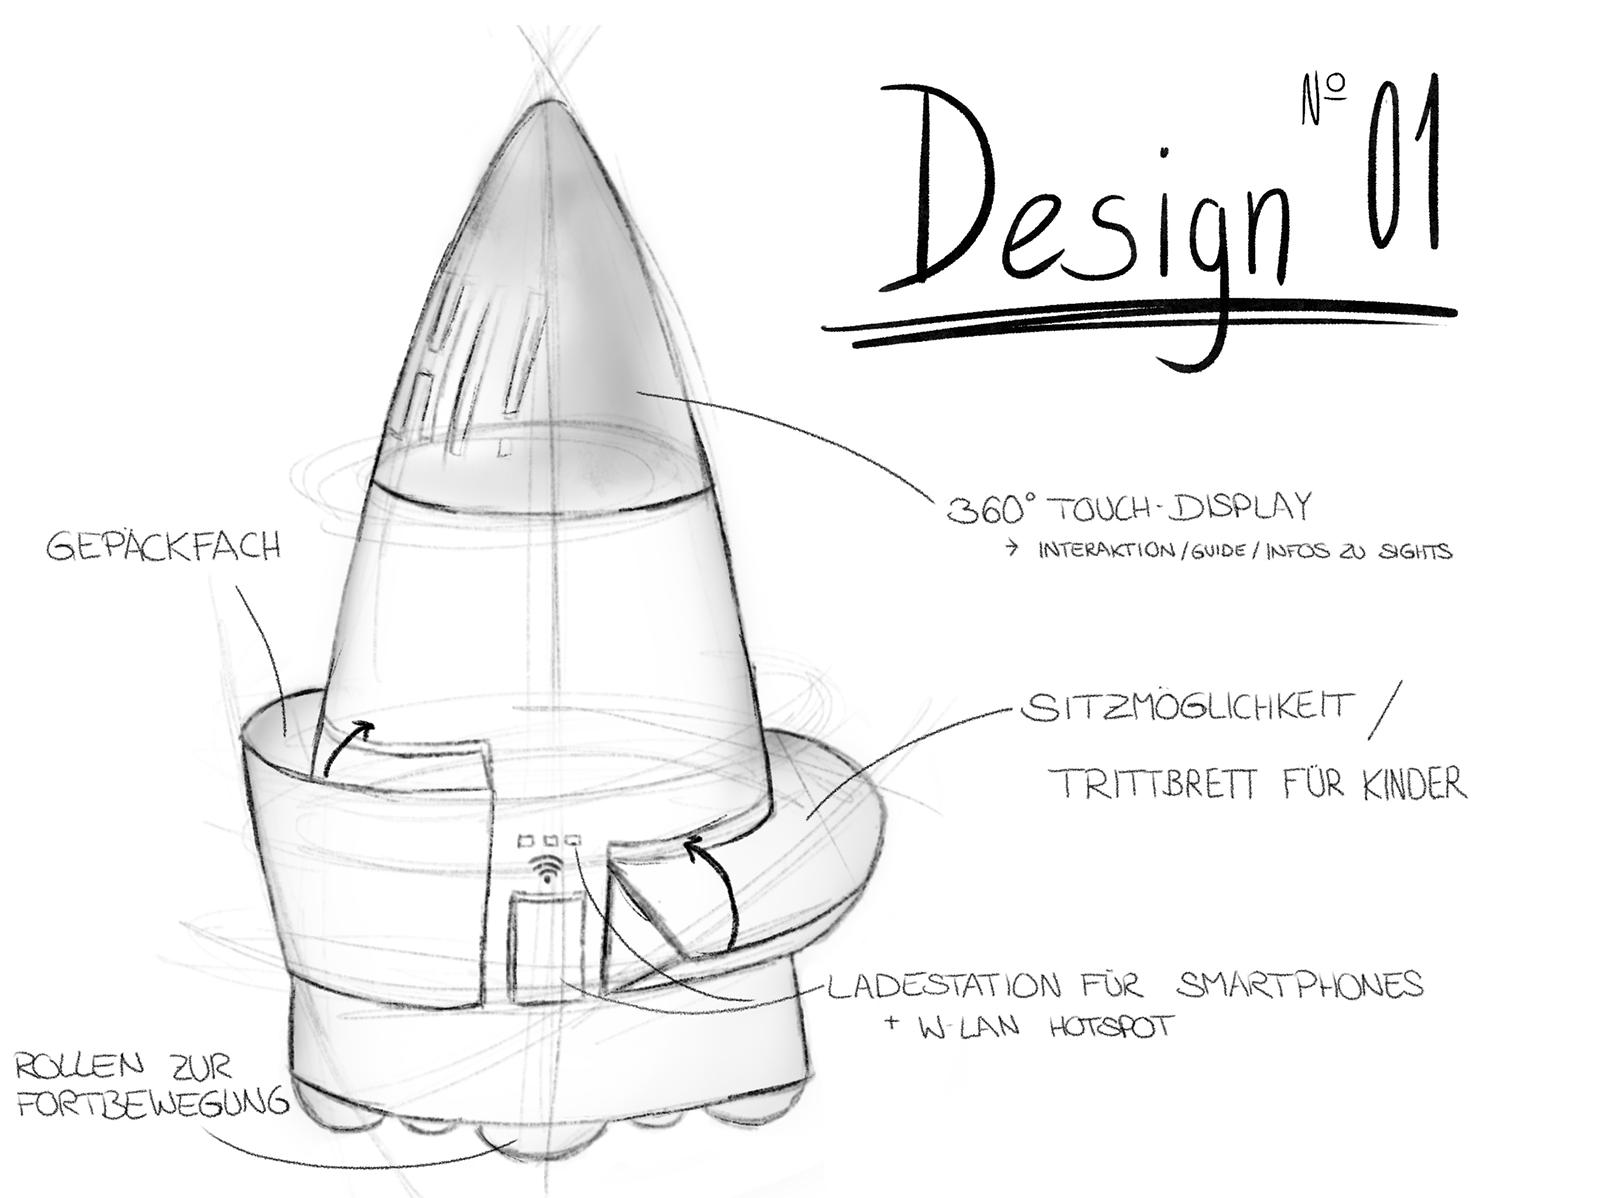 Design Nº 01
GEPÄCKFACH
360° TOUCH-DISPLAY
→ INTERAKTION/GUIDE/INFOS ZU SIGHTS
SITZMÖGLICHKEIT /
TRITTBRETT FÜR KINDER
LADESTATION FÜR SMARTPHONES
+ W-LAN HOTSPOT
ROLLEN ZUR
FORTBEWEGUNG